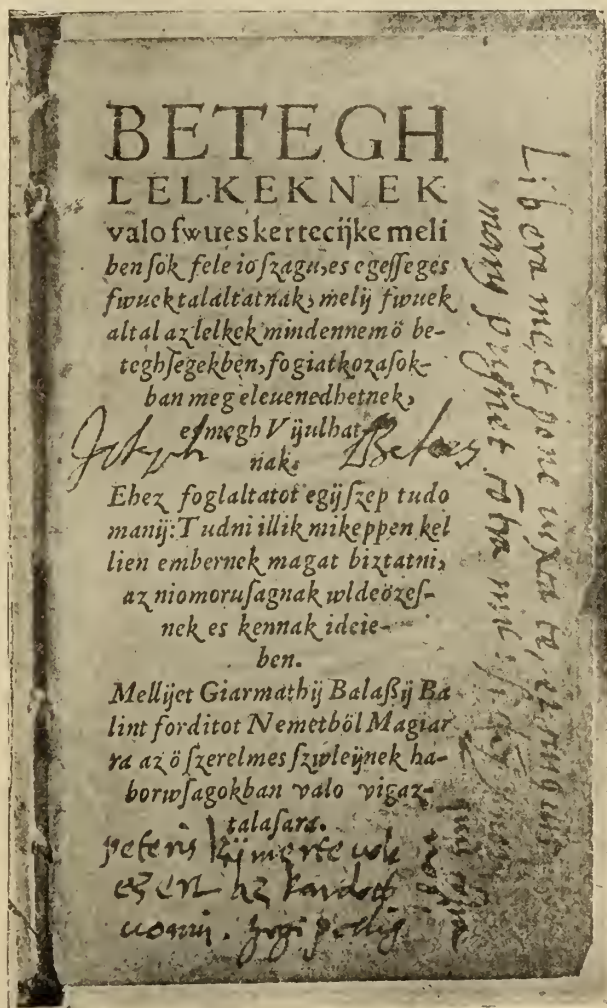 BETEGH
LELKEKNEK
valo fwues kertecijke meli
ben ſok fele io ſzagu, es egeſſeges
fwuek talaltatnak, melij fwuek
altal az lelkek mindennemö be-
teghſegekben, fogiatkozaſok-
ban meg eleuenedhetnek,
es megh Vijulhat
nak.
Ehez foglaltatot egij ſzep tudo
manij: Tudni illik mikeppen kel
lien embernek magat biztatni,
az niomoruſagnak wldeözeſ-
nek es kennak ideie-
ben.
Mellijet Giarmathij Balaßij Ba
lint forditot Nemetböl Magiar
ra az ö ſzerelmes ſzwleijnek ha-
borwſagokban valo vigaz-
talaſara.
peteris
ezert az kardoth
uonni.
Libera me, et pone iuxta te, et